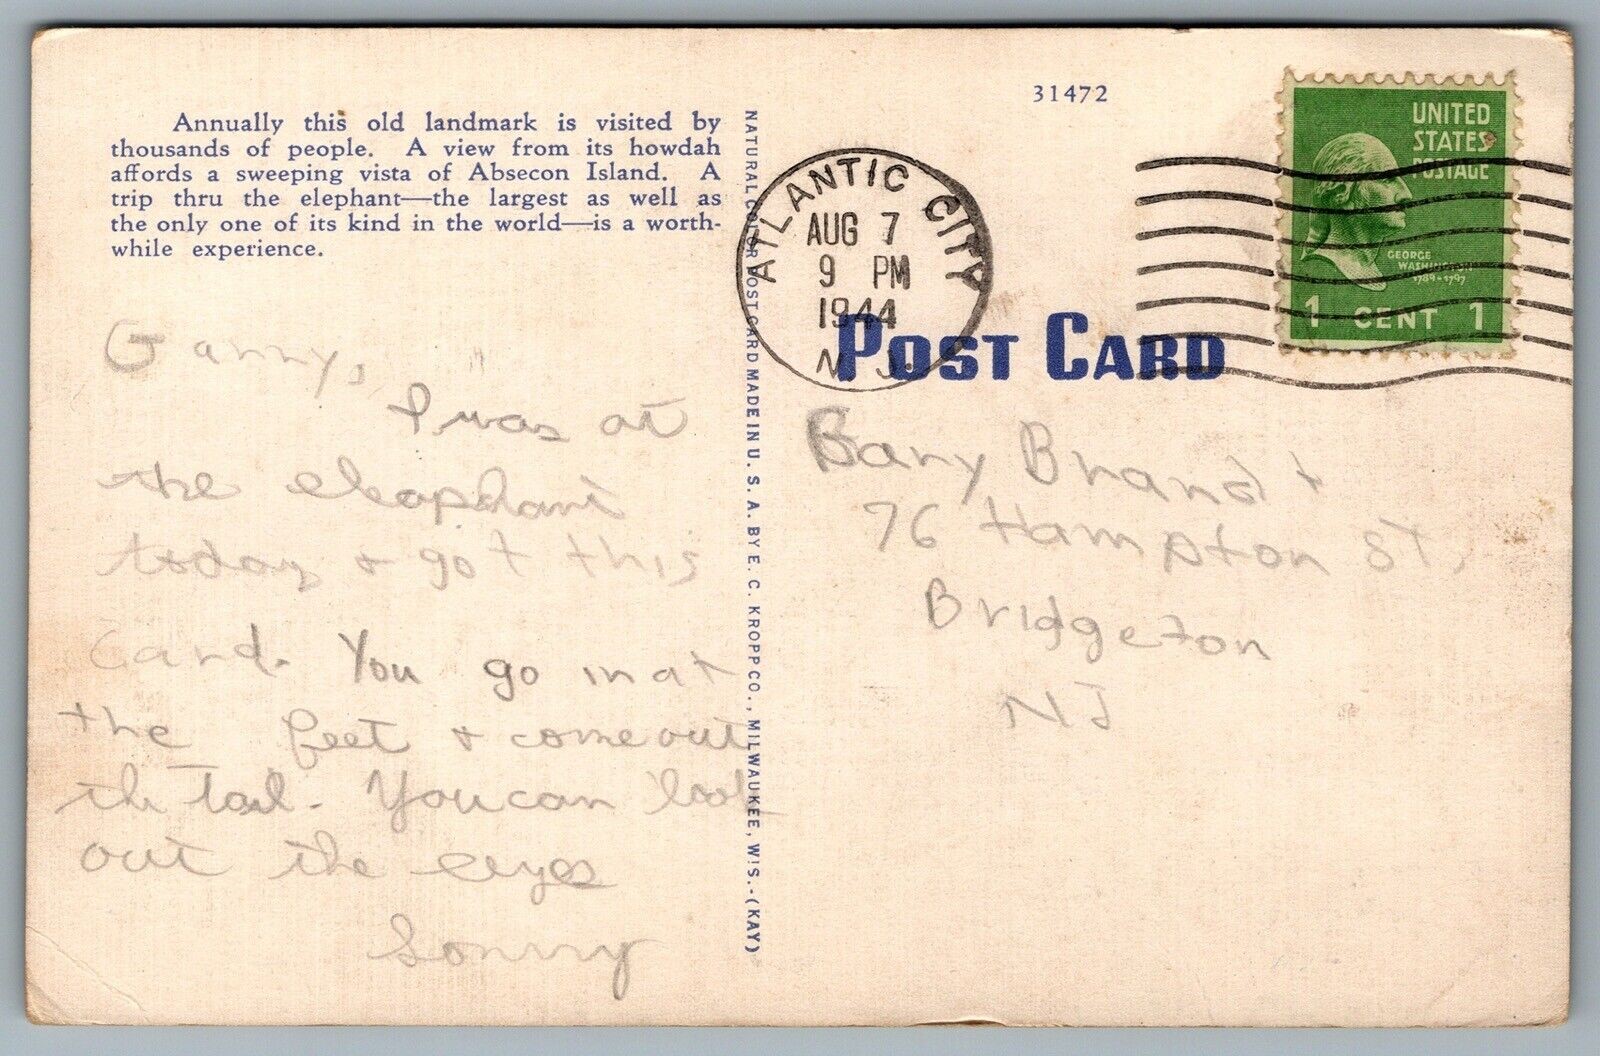 Annually this old landmark is visited by
thousands of people. A view from its howdah
affords a sweeping vista of Absecon Island. A
trip thru the elephant—the largest as well as
the only one of its kind in the world—is a worth-
while experience.
NATURAL COLOR POST CARD MADE IN U. S. A. BY E. C. KROPP CO., MILWAUKEE, WIS.-(KAY)
31472
ATLANTIC CITY
AUG 7
9 PM
1944
N. J.
UNITED
STATES
POSTAGE
GEORGE
WASHINGTON
1789-1797
1 CENT 1
POST CARD
Garry,
I was at
the eleaphant
today & got this
Card. You go in at
the feet & come out
the tail. You can look
out the eeyes
Sonny
Gary Brandt
76 Hampton St,
Bridgeton
NJ